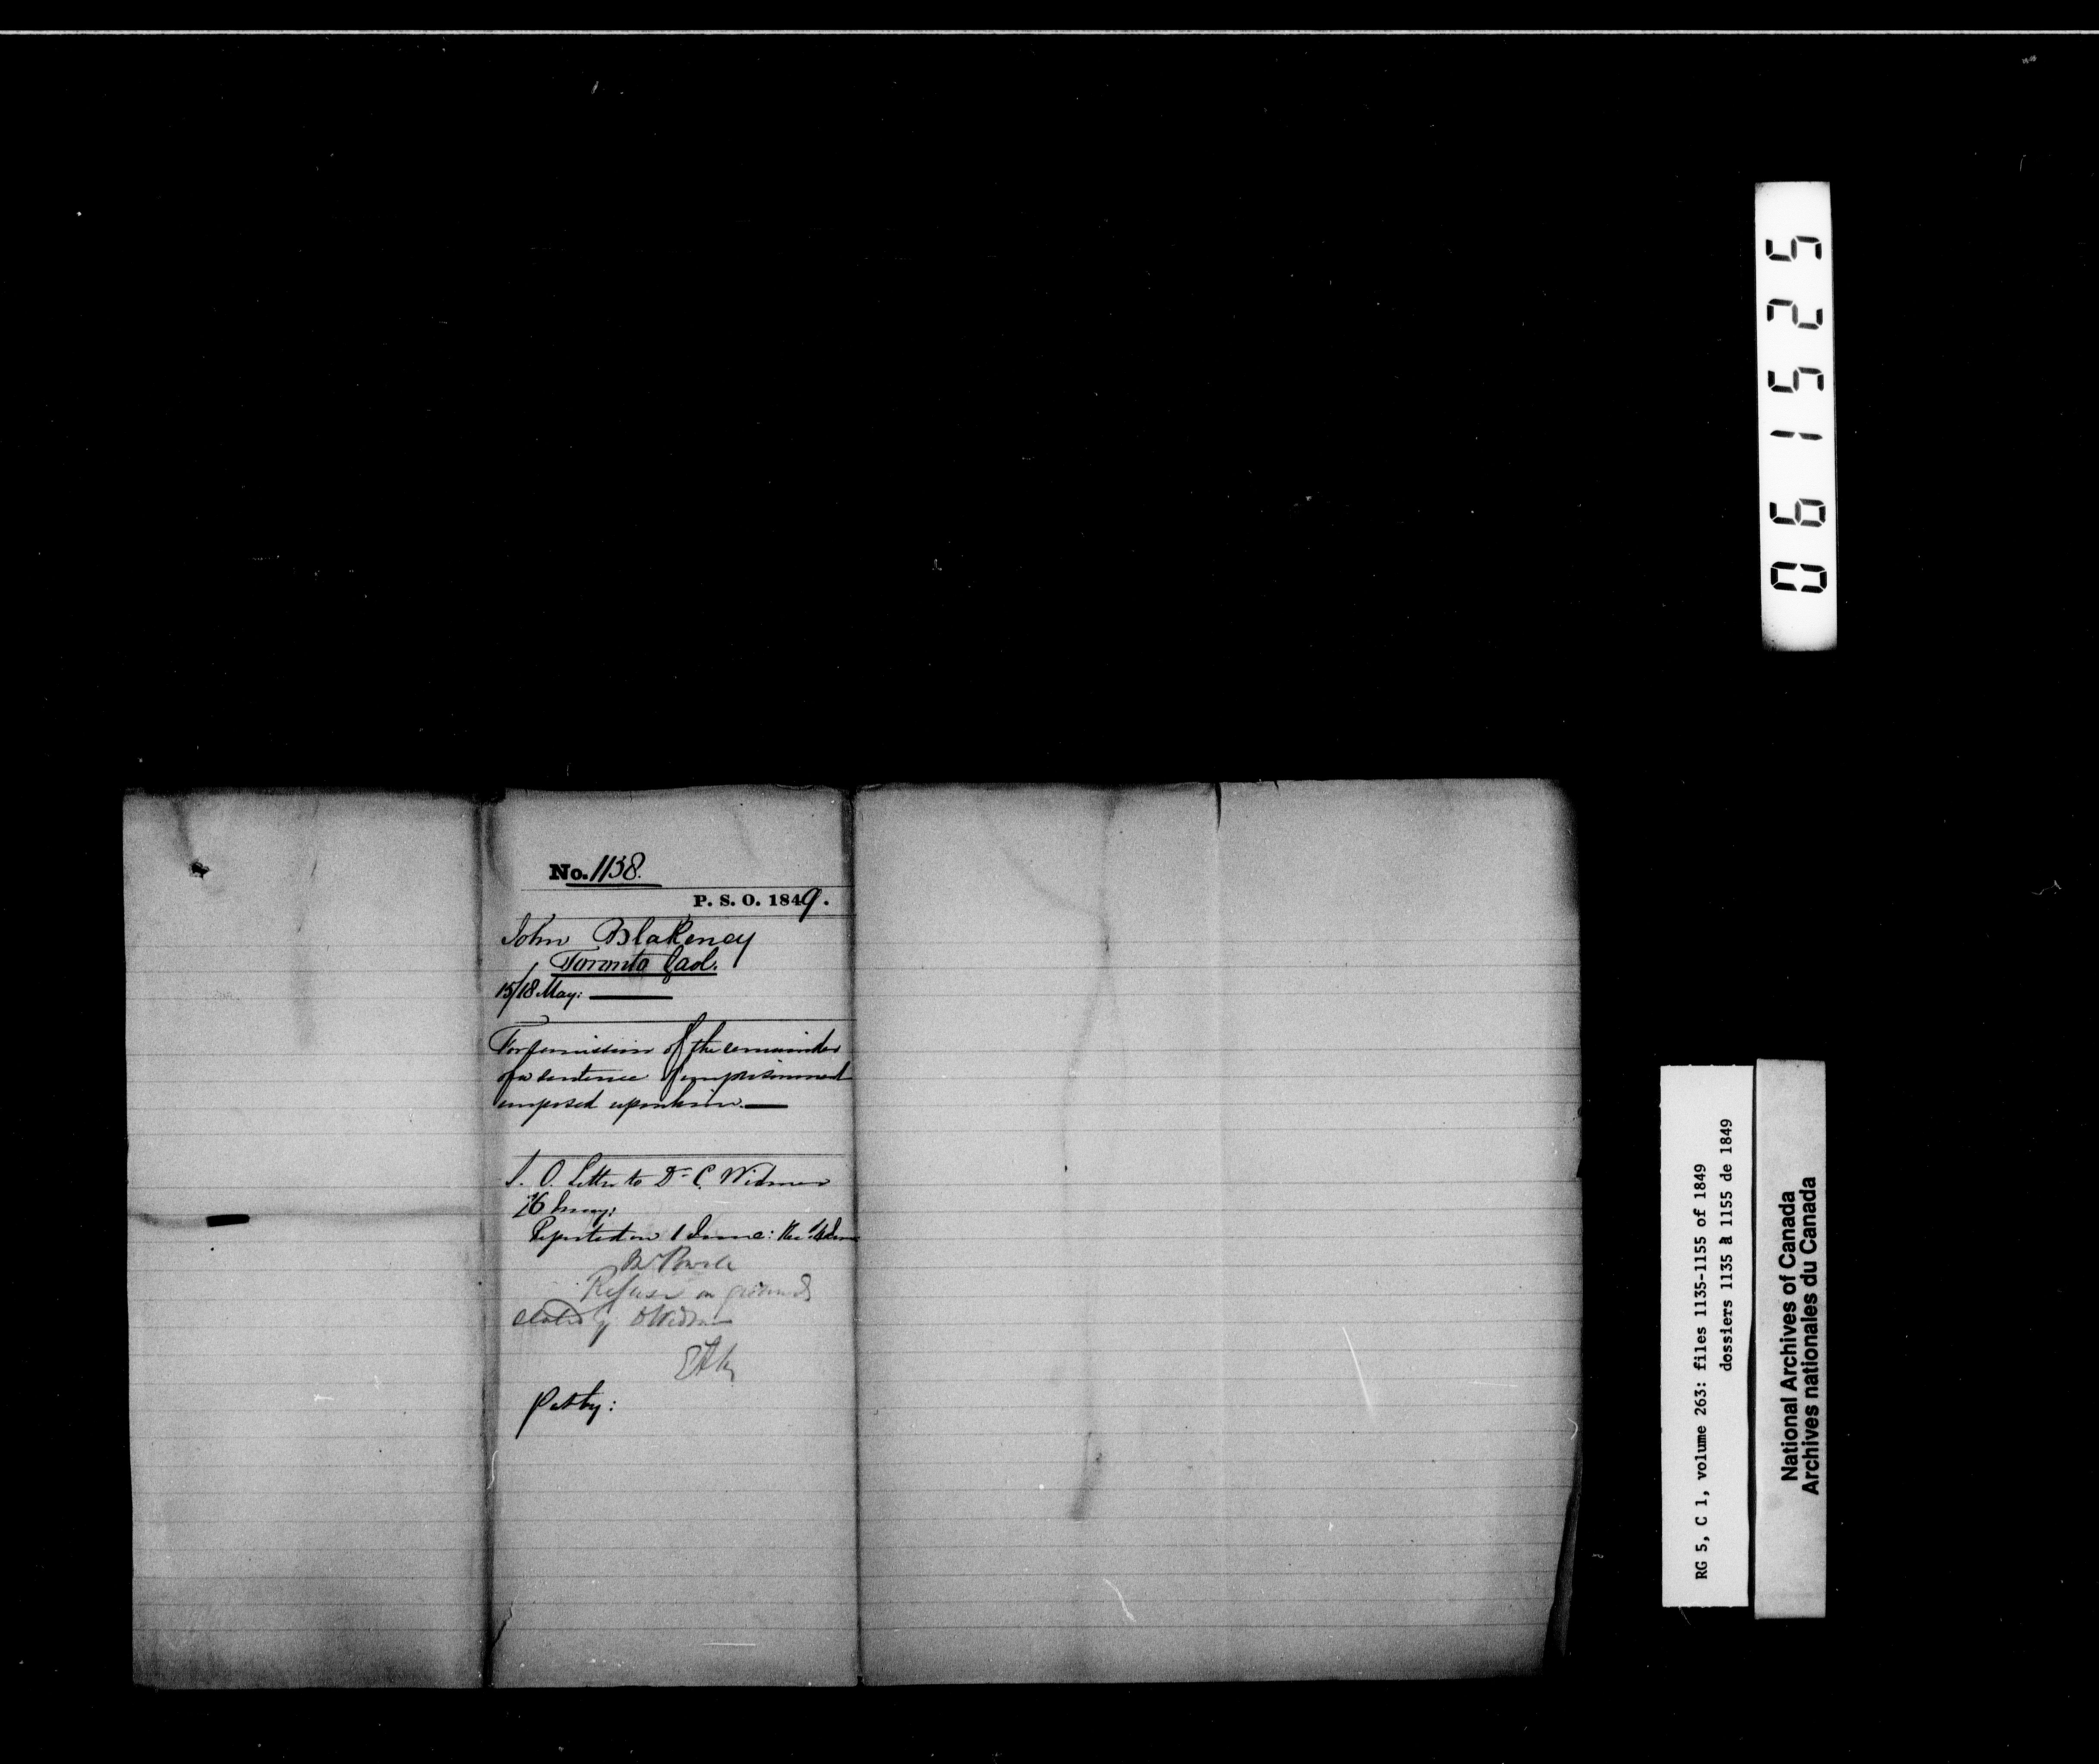 No. 1138.
P. S. O. 1849.
John Blakeney
Toronto Gaol.
15/18 May:
For remission of the remainder
of a sentence of imprisonment
imposed upon him.
L. O. Letter to Dr. C. Widmer
26 May:
Reported on 1 June: Rec. 4 June
Refuse on grounds
stated by Dr Widmer
061525
RG 5, C 1, volume 263: files 1135-1155 of 1849
dossiers 1135 à 1155 de 1849
National Archives of Canada
Archives nationales du Canada